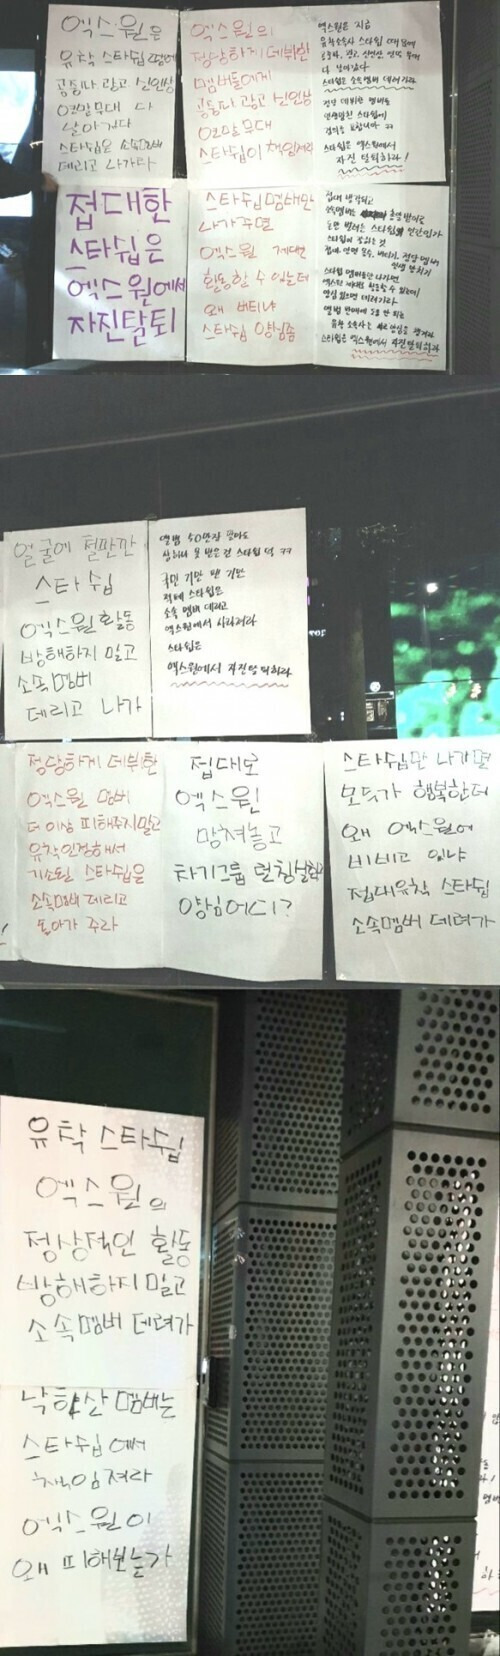 엑스원은
유착 스타쉽 때문에
공중파 광고 신인상
연말무대 다
날아갔다
스타쉽은 소속멤버
데리고 나가라
엑스원의
정당하게 데뷔한
멤버들에게
공중파 광고 신인상
연말무대
스타쉽이 책임져라
엑스원은 지금
유착소속사 스타쉽 때문에
공중파, 광고, 신인상, 연말 무대
다 날아갔다
스타쉽은 소속멤버 데려가라
정당 데뷔한 멤버들
인생망친 스타쉽에
스타쉽은 엑스원에서
자진 탈퇴하라!
접대한
스타쉽은
엑스원에서
자진탈퇴
스타쉽멤버만
나가주면
엑스원 제대로
활동할 수 있는데
왜 버티냐
스타쉽 양심좀
스타쉽 멤버들만 나가면
엑스원 제대로 활동할 수 있는데
양심 있으면 데려가라
스타쉽은 엑스원에서 자진탈퇴하라
얼굴에 철판깐
스타쉽
엑스원활동
방해하지 말고
소속멤버
데리고 나가
앨범 50만장 팔아도
상하나 못 받은건 스타쉽 덕 ㅋㅋ
국민 기만 팬 기만
적폐 스타쉽은
소속 멤버 데리고
엑스원에서 사라져라
스타쉽은
엑스원에서 자진탈퇴하라
정당하게 데뷔한
엑스원 멤버
더이상 피해주지말고
유착인정해서
기소된 스타쉽은
소속멤버 데리고
돌아가 주라
접대로
엑스원
망쳐놓고
차기그룹 런칭실화?
양심어디?
스타쉽만 나가면
모두가 행복한데
왜 엑스원에
비비고 있냐
접대유착 스타쉽
소속멤버 데려가
유착 스타쉽
엑스원의
정상적인 활동
방해하지말고
소속멤버 데려가
낙하산 멤버는
스타쉽에서
책임져라
엑스원이
왜 피해보는가